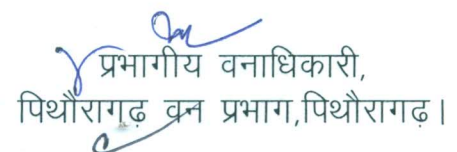 प्रभागीय वनाधिकारी,
पिथौरागढ़ वन प्रभाग,पिथौरागढ़।